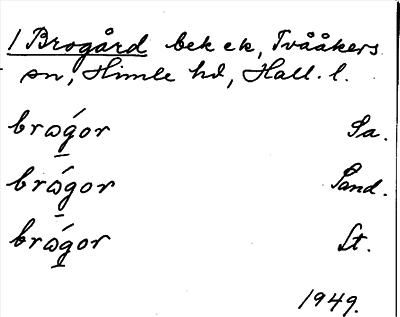 1 Brogård bek ek, Tvååkers
sn, Himle hd, Hall. l.
brɷ́gor Sa.
brɷ́gor Sand.
brɷ́gor Lt.
1949.